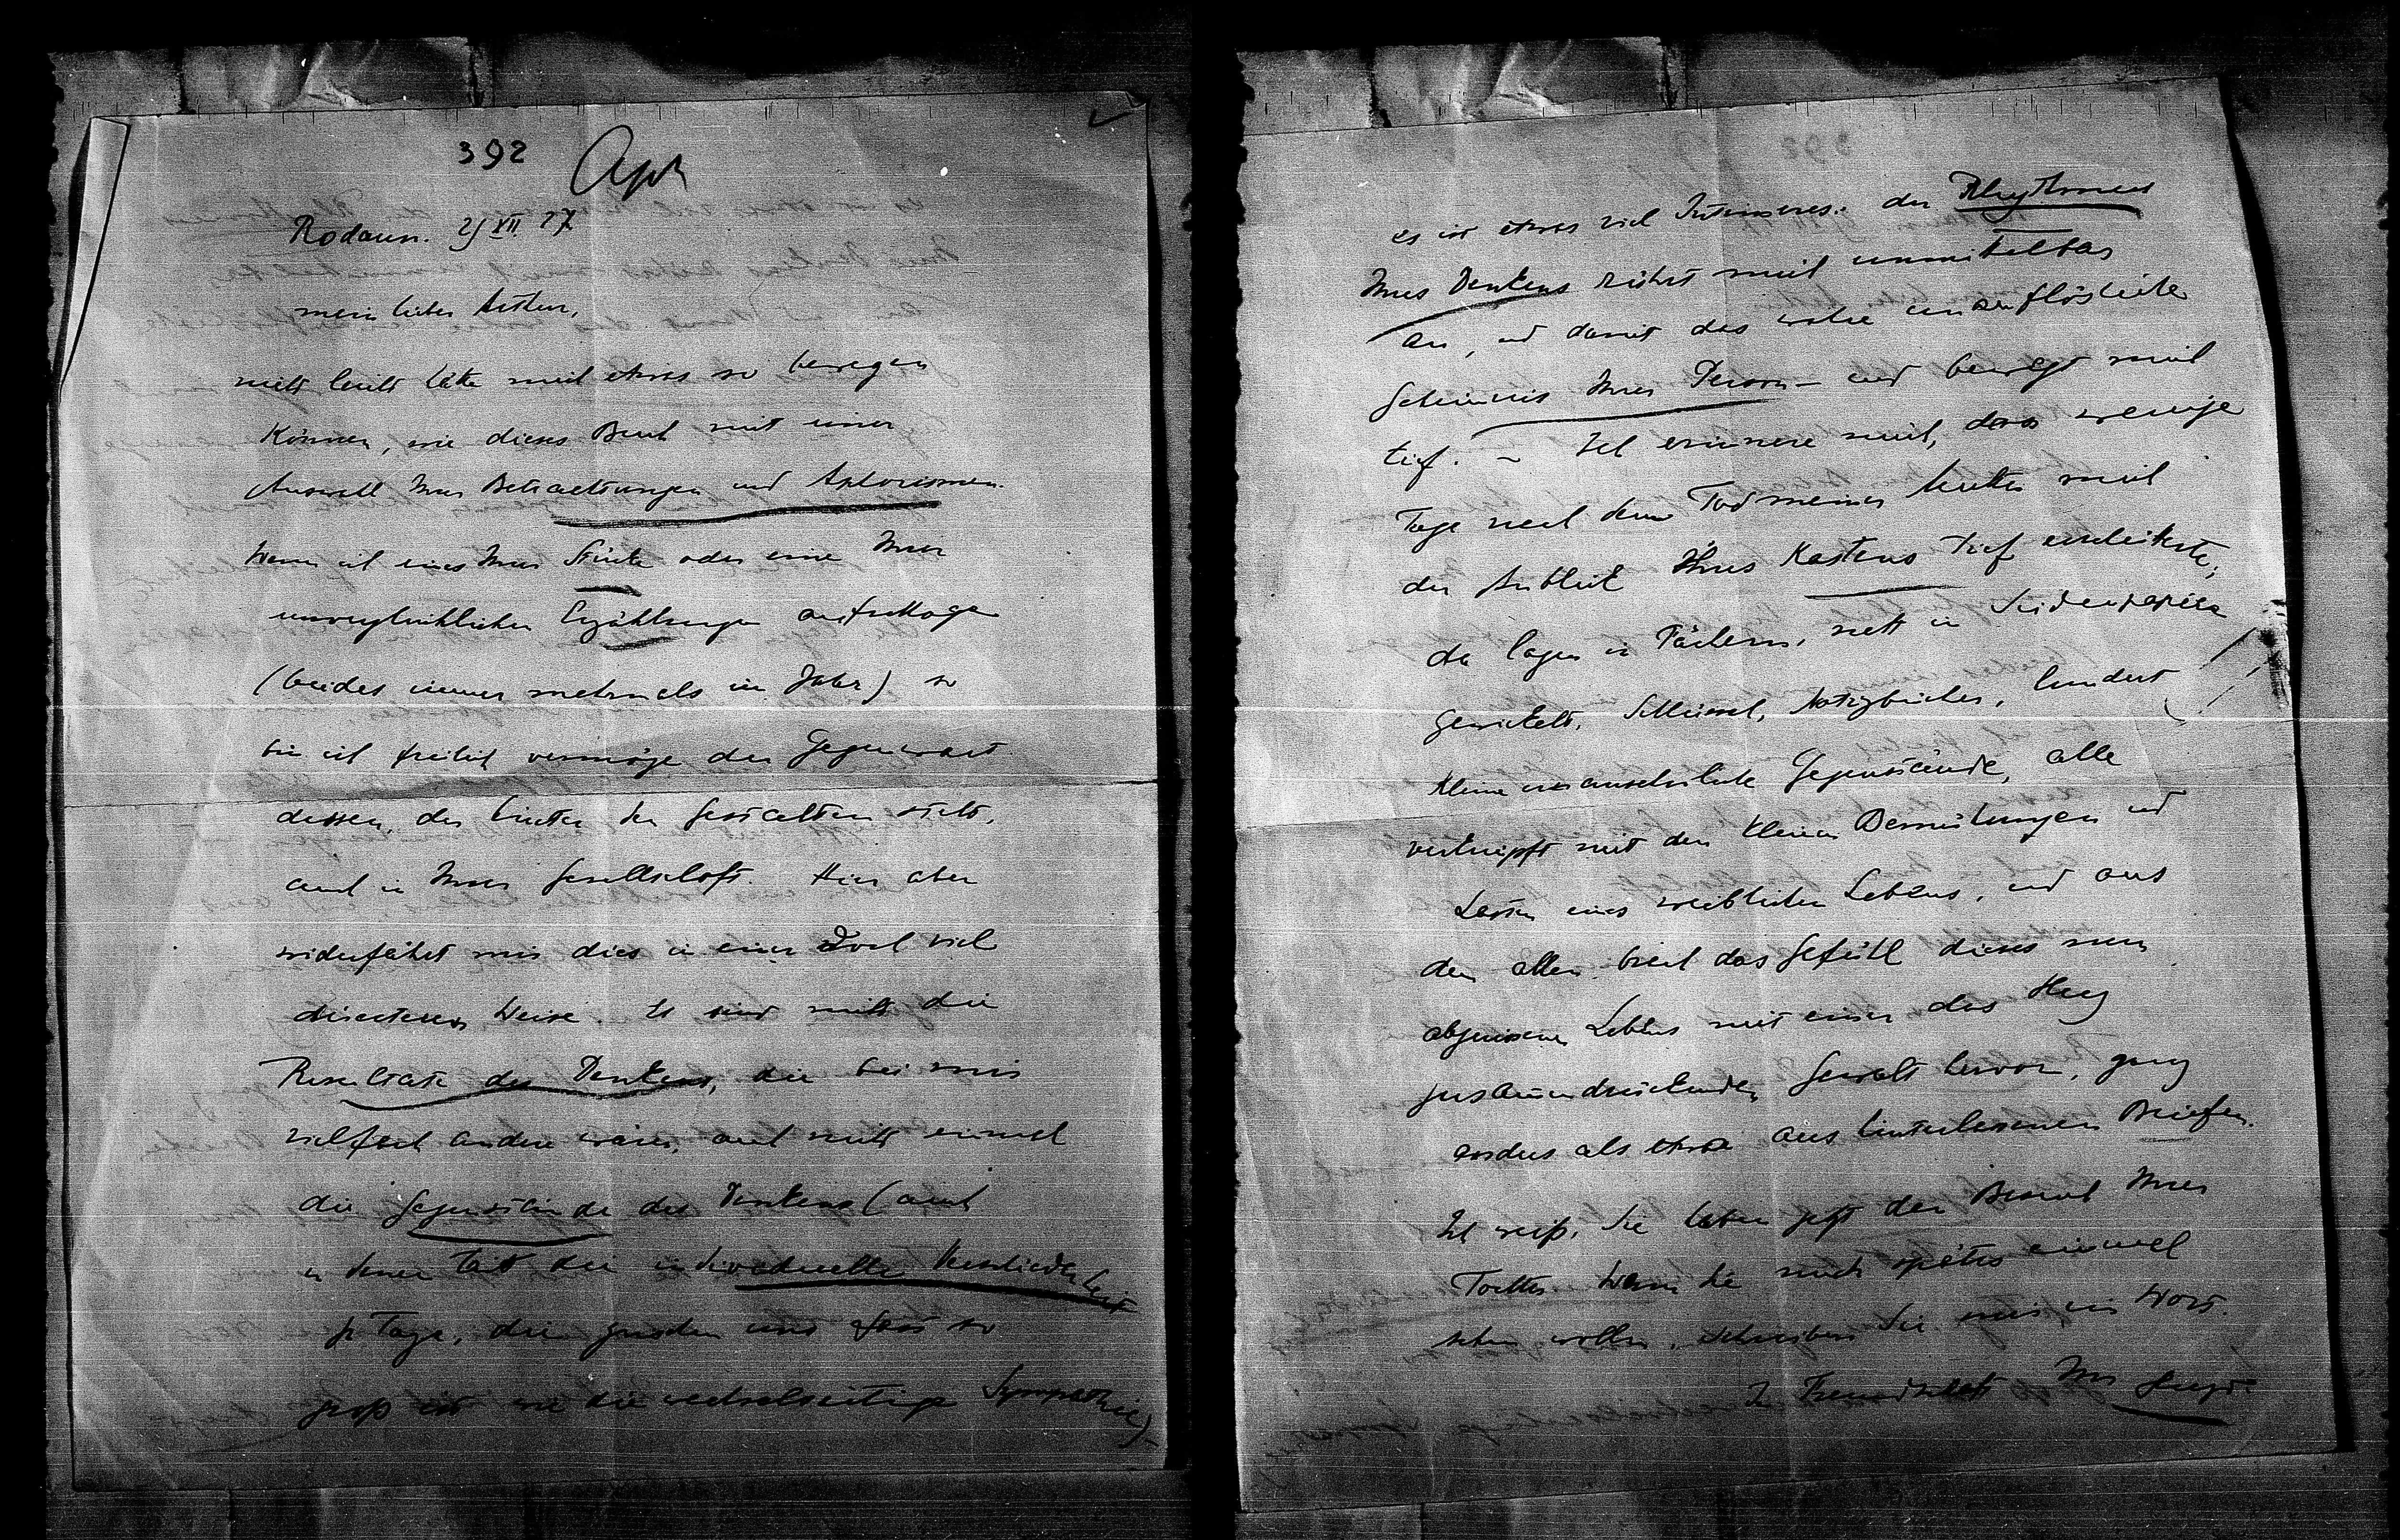 392 Aph
Rodaun. 25 XII 27
mein lieber Arthur,
nicht leicht hätte mich etwas so bewegen
können, wie dieses Buch mit einer
Auswahl Ihrer Betrachtungen und Aphorismen.
Wenn ich eines Ihrer Stücke oder eine Ihrer
unvergleichlichen Erzählungen aufschlage
(beides immer mehrmals im Jahr) so
bin ich freilich vermöge der Gegenwart
dessen, der hinter den Gestalten steht,
auch in Ihrer Gesellschaft. Hier aber
widerfährt mir dies in einer doch viel
directeren Weise. Es sind nicht die
Resultate des Denkens, die bei mir
vielfach andere wären, auch nicht einmal
die Gegenstände des Denkens (auch
in denen tritt die individuelle Verschiedenheit
zu Tage, die zwischen uns fast so
groß ist wie die wechselseitige Sympathie)–
es ist etwas viel Intimeres: der Rhythmus
Ihres Denkens rührt mich unmittelbar
an, und damit das wahre unauflösliche
Geheimnis Ihrer Person – und bewegt mich
tief. – Ich erinnere mich, dass wenige
Tage nach dem Tod meiner Mutter mich
der Anblick Ihres Kastens tief erschütterte;
da lagen in Fächern, nett in Seidenpapier
gewickelt, Schlüssel, Notizbücher, hundert
kleine unansehnliche Gegenstände, alle
verknüpft mit den kleinen Bemühungen und
Lasten eines weiblichen Lebens, und aus
dem allen brach das Gefühl dieses nun
abgerissenen Lebens mit einer das Herz
zusammendrückenden Gewalt hervor, ganz
anders als etwa aus hinterlassenen Briefen.
Ich weiß, Sie haben jetzt den Besuch Ihrer
Tochter. Wenn Sie mich später einmal
sehen wollen, schreiben Sie mir ein Wort.
In Freundschaft Ihr Hugo.